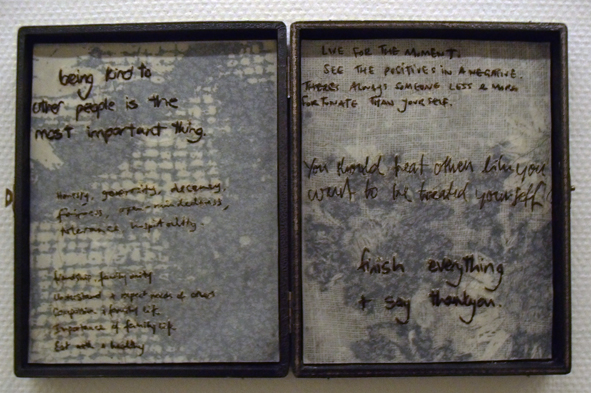 being kind to
other people is the
most important thing.
Honesty, generosity, decency,
fairness, open-mindedness,
tolerance, hospitality.
family unity
Understand & respect needs of others
Compassion & family life
Importance of family life
Eat well & healthy
LIVE FOR THE MOMENT.
SEE THE POSITIVES IN A NEGATIVE.
THERES ALWAYS SOMEONE LESS & MORE
FORTUNATE THAN YOURSELF.
You should treat others like you
want to be treated yourself
finish everything
+ say thankyou.